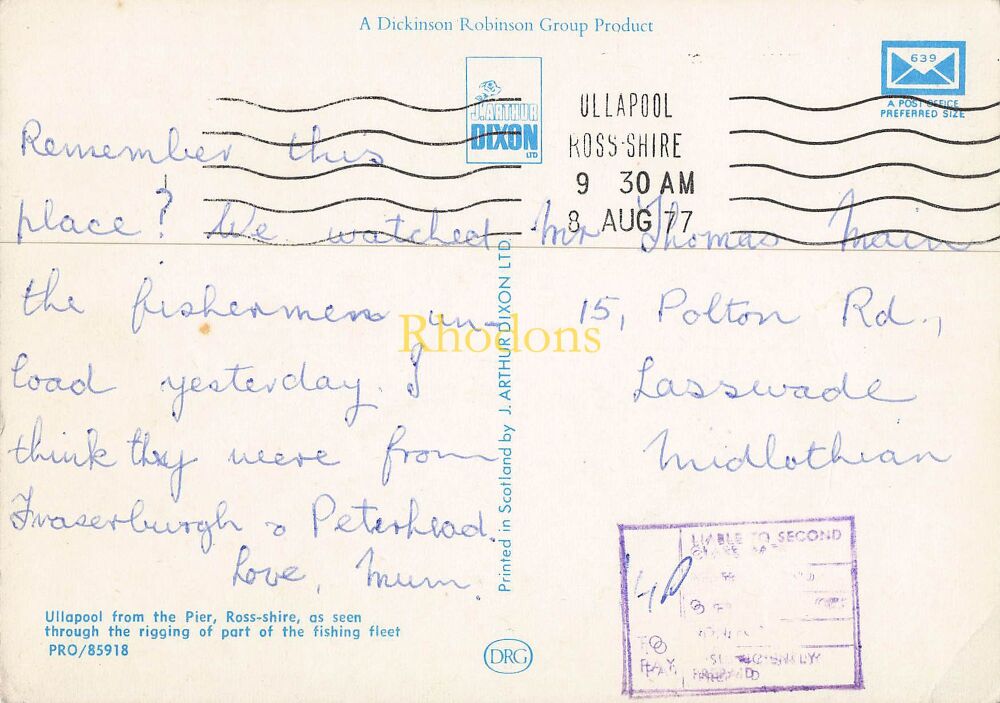 A Dickinson Robinson Group Product
639
A POST OFFICE
PREFERRED SIZE
J. ARTHUR
DIXON
LTD
ULLAPOOL
ROSS-SHIRE
9 30 AM
8 AUG 77
Remember this
place? We watched
the fishermen un-
load yesterday. I
think they were from
Fraserburgh & Peterhead.
Love, Mum.
Mr Thomas Main
15, Polton Rd.,
Lasswade
Midlothian
Rhodons
Printed in Scotland by J. ARTHUR DIXON LTD.
LIABLE TO SECOND
4P
TO
PAY
PREPAID
Ullapool from the Pier, Ross-shire, as seen
through the rigging of part of the fishing fleet
PRO/85918
DRG